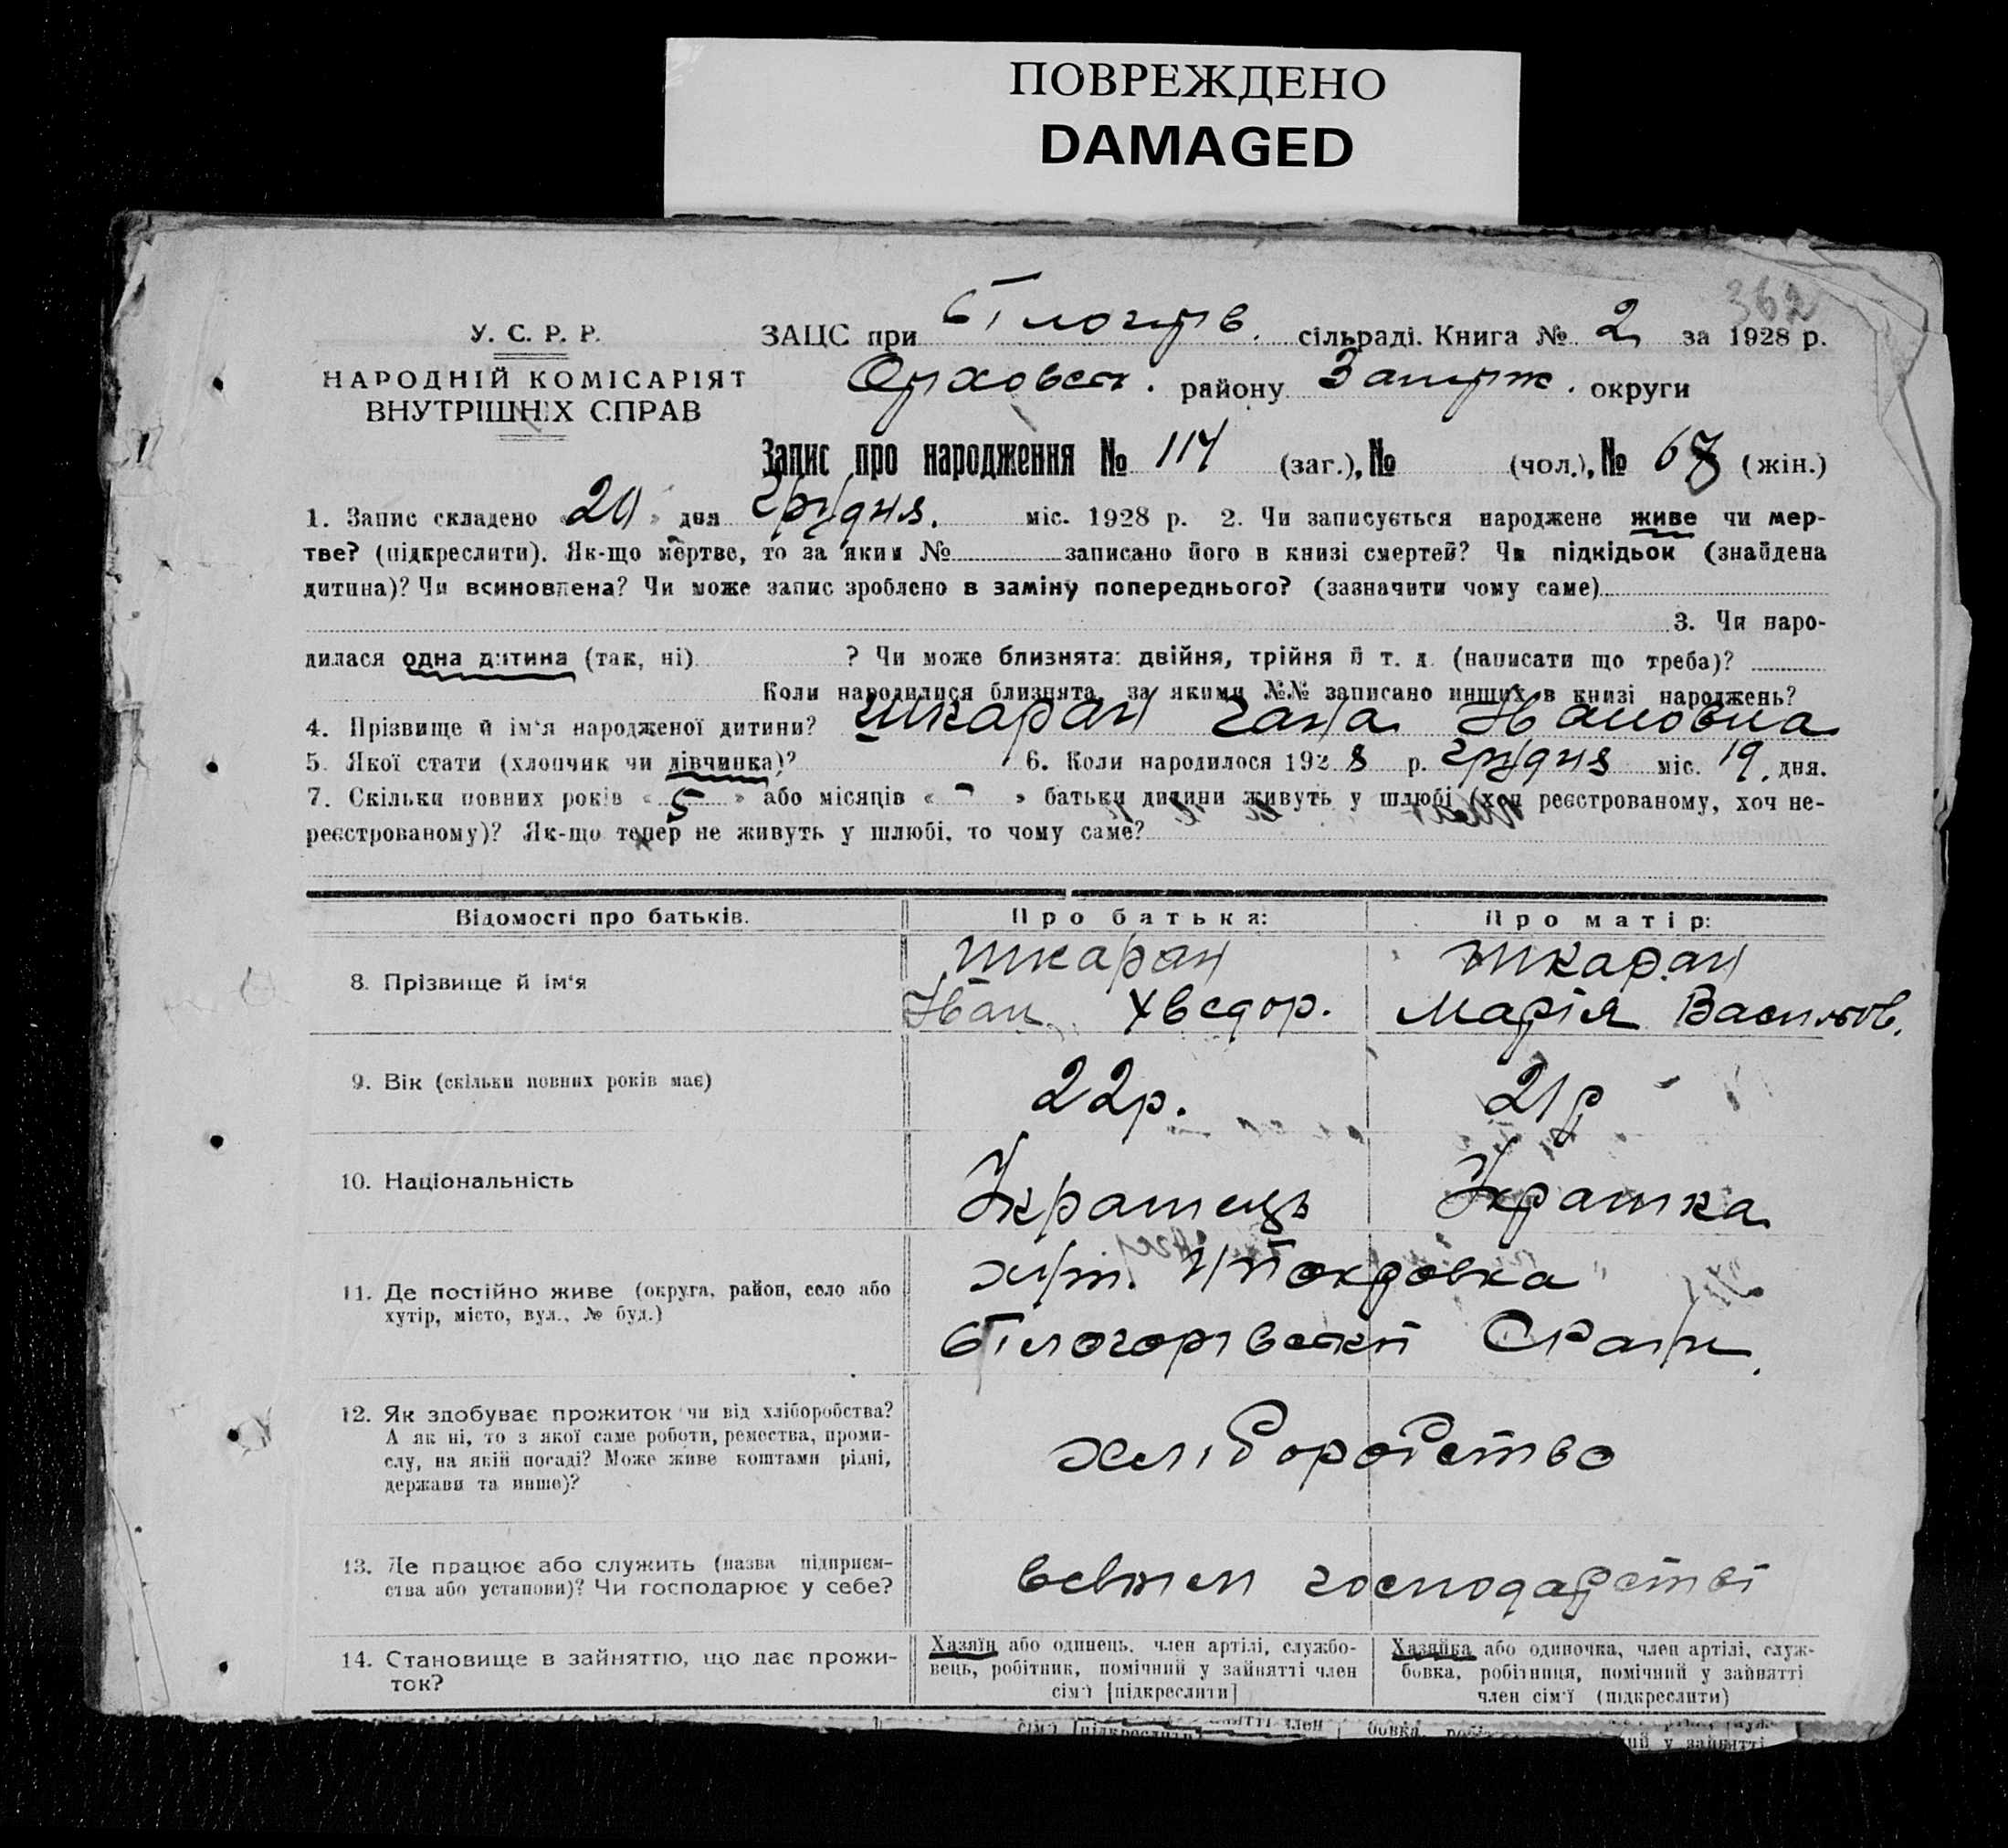 ПОВРЕЖДЕНО
DAMAGED
362
У. С. Р. Р.
НАРОДНІЙ КОМІСАРІЯТ
ВНУТРІШНІХ СПРАВ
ЗАЦС при Білогір. сільраді. Книга № 2 за 1928 р.
Оріховськ. району Запоріж. округи
Запис про народження № 114 (заг.), № (чол.), № 68 (жін.)
1. Запис складено «20» дня грудня. міс. 1928 р. 2. Чи записується народжене живе чи мер-
тве? (підкреслити). Як-що мертве, то за яким № записано його в книзі смертей? Чи підкідьок (знайдена
дитина)? Чи всиновлена? Чи може запис зроблено в заміну попереднього? (зазначити чому саме)
3. Чи наро-
дилася одна дитина (так, ні) ? Чи може близнята: двійня, трійня й т. д. (написати що треба)?
Коли народилися близнята, за якими №№ записано инших в книзі народжень?
4. Прізвище й ім'я народженої дитини? Шкаран Гана Ивановна
5. Якої стати (хлопчик чи дівчинка)? 6. Коли народилося 1928 р. грудня міс. 19. дня.
7. Скільки повних років «5» або місяців «-» батьки дитини живуть у шлюбі (хоч реєстрованому, хоч не-
реєстрованому)? Як-що тепер не живуть у шлюбі, то чому саме?
Відомості про батьків. Про батька: Про матір:
8. Прізвище й ім'я
Шкаран Шкаран
Иван Хведор. Марія Васильов.
9. Вік (скільки повних років має) 22р. 21р
10. Національність Українець Українка
11. Де постійно живе (округа, район, село або
хутір, місто, вул., № буд.)
хут. Покровка
Білогорівскої Сілради
12. Як здобуває прожиток чи від хліборобства?
А як ні, то з якої саме роботи, ремества, проми-
слу, на якій посаді? Може живе коштами рідні,
держави та инше)?
хліборобство
13. Де працює або служить (назва підприєм-
ства або установи)? Чи господарює у себе?
всвоєм господарстві
14. Становище в зайняттю, що дає прожи-
ток?
Хазяїн або одинець, член артілі, службо-
вець, робітник, помічний у зайнятті член
сім'ї [підкреслити]
Хазяйка або одиночка, член артілі, служ-
бовка, робітниця, помічний у зайнятті
член сім'ї (підкреслити)